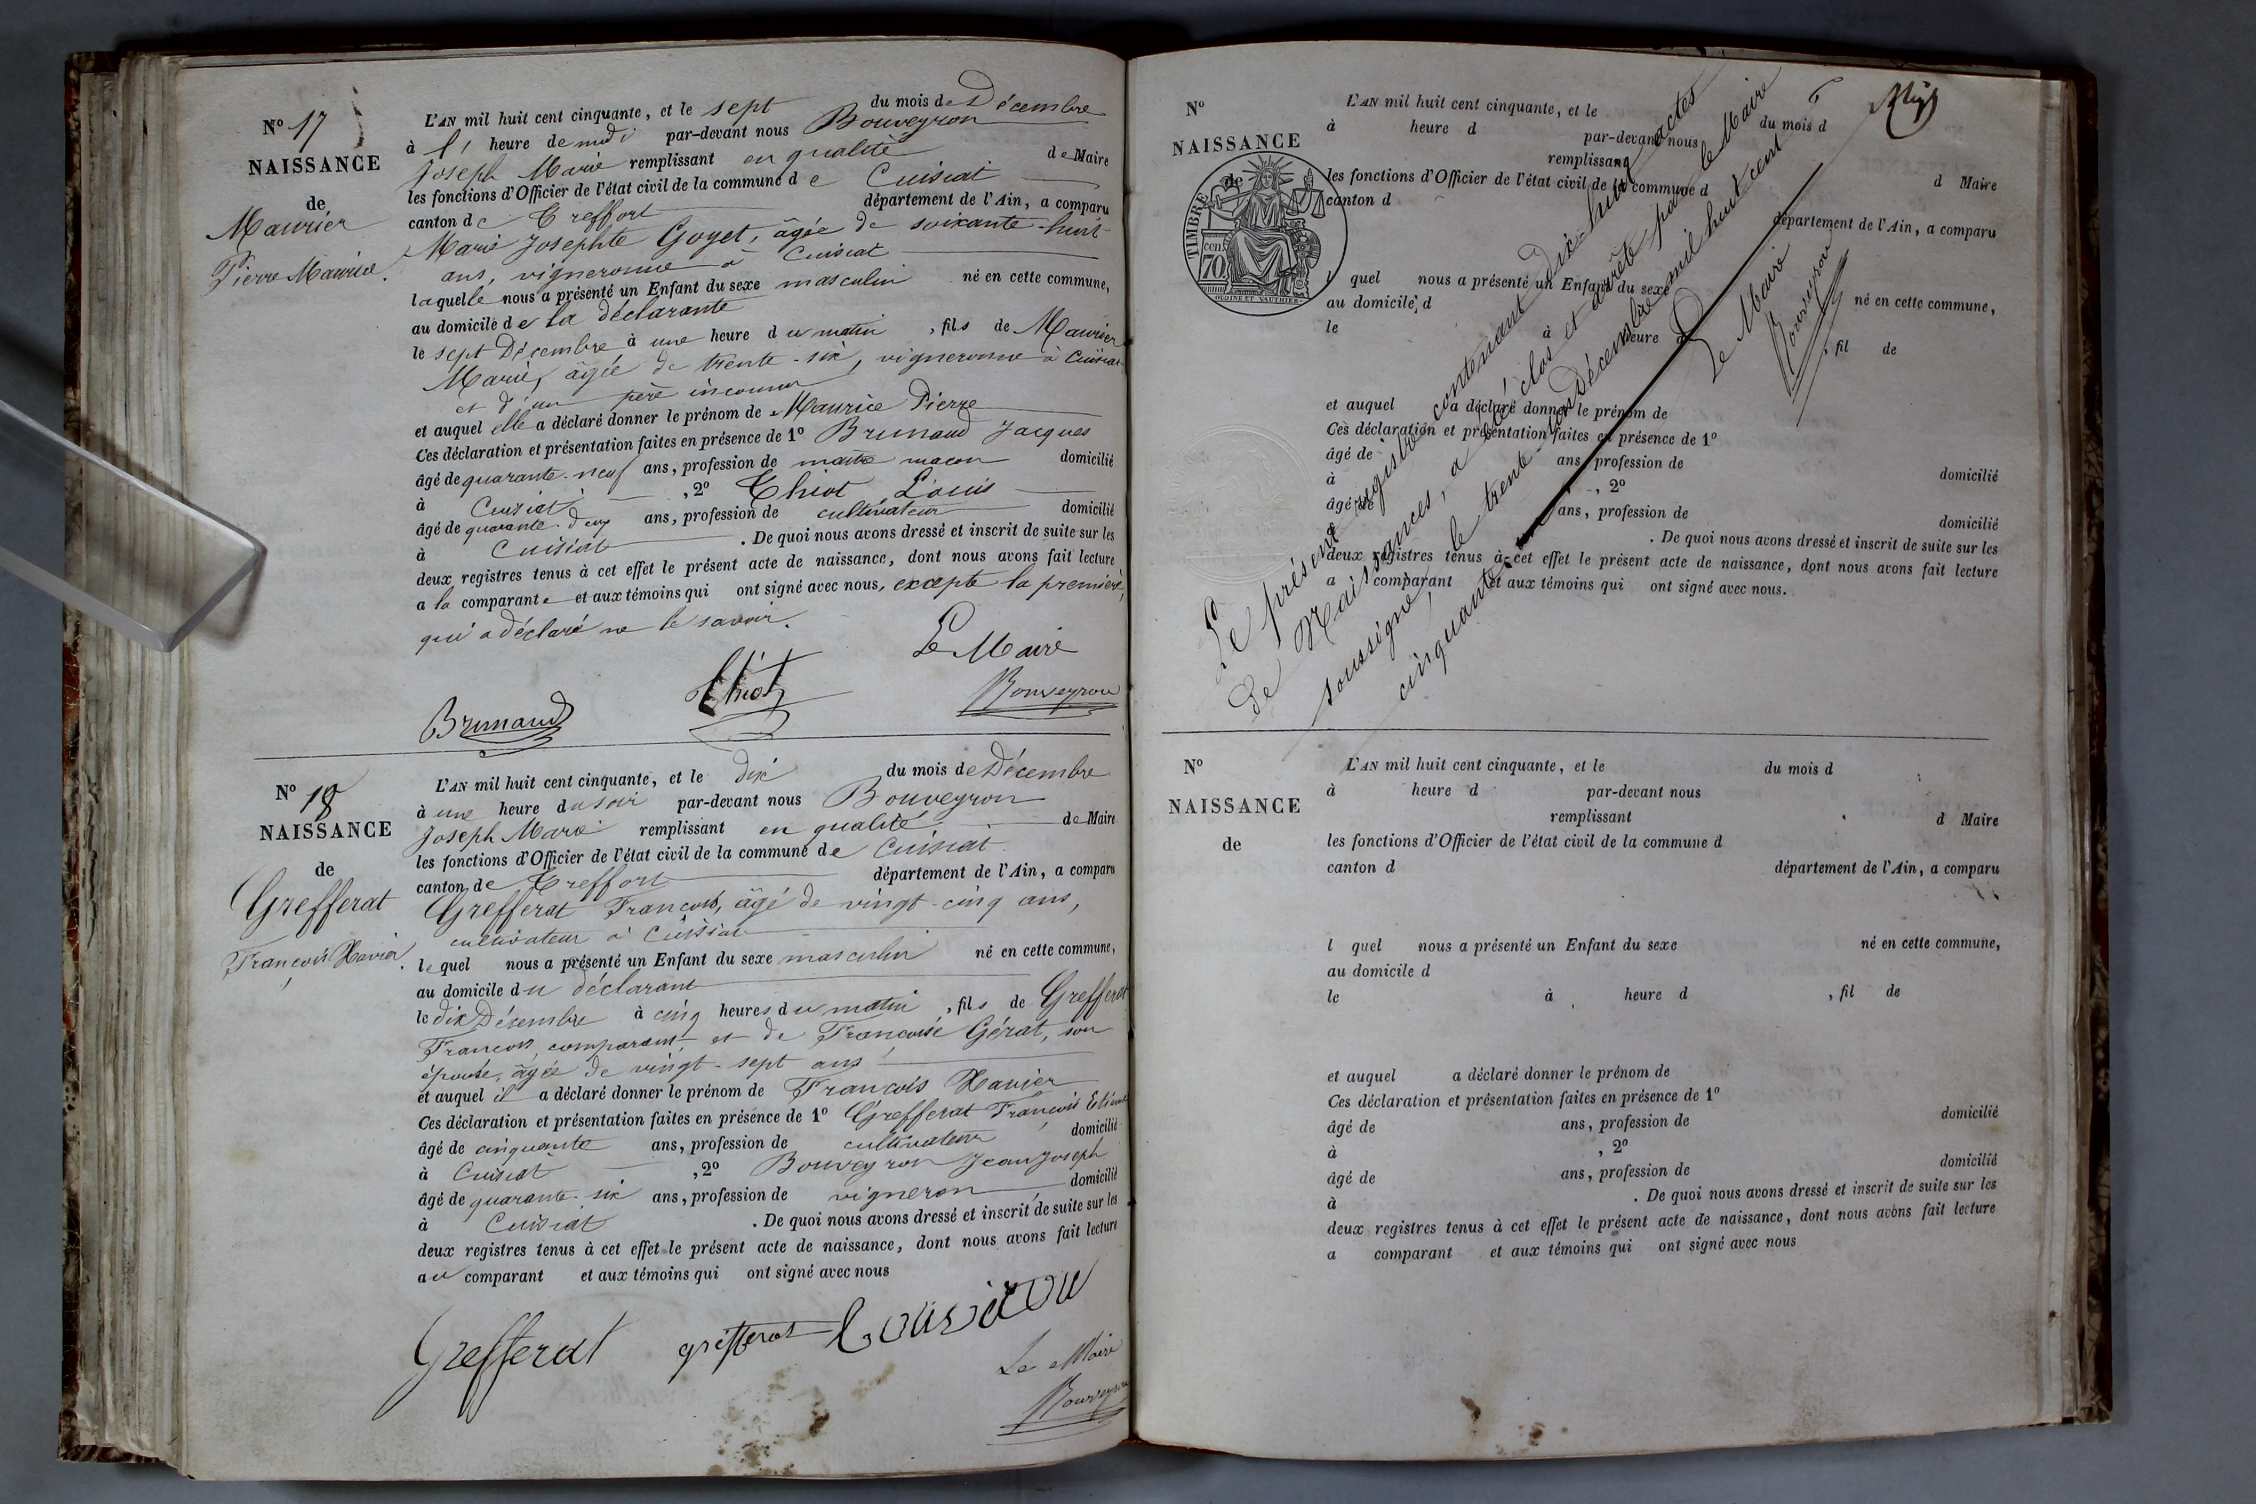 N° 17
NAISSANCE
de
Maurier
Pierre Maurice.
L'AN mil huit cent cinquante, et le sept du mois de Décembre
à l' heure de midi par-devant nous Bouveyron
Joseph Marie remplissant en qualité de Maire
les fonctions d'Officier de l'état civil de la commune de Cuisiat
canton de Treffort département de l'Ain, a comparu
Marie Josephte Goyet, âgée de soixante-huit
ans, vigneronne à Cuisiat
laquelle nous a présenté un Enfant du sexe masculin né en cette commune,
au domicile de la déclarante
le sept Décembre à une heure du matin, fils de Maurier
Marie, âgée de trente-six, vigneronne à Cuisiat
et d'un père inconnu
et auquel elle a déclaré donner le prénom de Maurice Pierre
Ces déclaration et présentation faites en présence de 1° Brunaud Jacques
âgé de quarante-neuf ans, profession de maître maçon domicilié
à Cuisiat, 2° Thiot Louis
âgé de quarante-deux ans, profession de cultivateur domicilié
à Cuisiat. De quoi nous avons dressé et inscrit de suite sur les
deux registres tenus à cet effet le présent acte de naissance, dont nous avons fait lecture
a la comparante et aux témoins qui ont signé avec nous, excepté la première,
qui a déclaré ne le savoir.
Le Maire
Brunaud Thiot Bouveyron
N° 18
NAISSANCE
de
Grefferat
François Xavier.
L'AN mil huit cent cinquante, et le dix du mois de Décembre
à une heure du soir par-devant nous Bouveyron
Joseph Marie remplissant en qualité de Maire
les fonctions d'Officier de l'état civil de la commune de Cuisiat
canton de Treffort département de l'Ain, a comparu
Grefferat François, âgé de vingt-cinq ans,
cultivateur à Cuisiat
lequel nous a présenté un Enfant du sexe masculin né en cette commune,
au domicile du déclarant
le dix Décembre à cinq heures du matin, fils de Grefferat
François, comparant et de Françoise Gérat, son
épouse, âgée de vingt-sept ans
et auquel il a déclaré donner le prénom de François Xavier
Ces déclaration et présentation faites en présence de 1° Grefferat François
âgé de cinquante ans, profession de cultivateur domicilié
à Cuisiat, 2° Bouveyron Jean Joseph
âgé de quarante-six ans, profession de vigneron domicilié
à Cuisiat. De quoi nous avons dressé et inscrit de suite sur les
deux registres tenus à cet effet le présent acte de naissance, dont nous avons fait lecture
au comparant et aux témoins qui ont signé avec nous
Grefferat grefferat
Le Maire
Bouveyron
N°
NAISSANCE
de
TIMBRE
70
L'AN mil huit cent cinquante, et le du mois d
à heure d par-devant nous
remplissant d Maire
les fonctions d'Officier de l'état civil de la commune d
canton d département de l'Ain, a comparu
l quel nous a présenté un Enfant du sexe né en cette commune,
au domicile d
le à heure d, fil de
et auquel a déclaré donner le prénom de
Ces déclaration et présentation faites en présence de 1°
âgé de ans, profession de domicilié
à, 2°
âgé de ans, profession de domicilié
à. De quoi nous avons dressé et inscrit de suite sur les
deux registres tenus à cet effet le présent acte de naissance, dont nous avons fait lecture
a comparant et aux témoins qui ont signé avec nous.
Le présent registre contenant dix-huit actes
de Naissances, a été clos et arrêté par le Maire
soussigné, le trente-un Décembre mil huit cent
cinquante
Le Maire
Bouveyron
N°
NAISSANCE
de
L'AN mil huit cent cinquante, et le du mois d
à heure d par-devant nous
remplissant d Maire
les fonctions d'Officier de l'état civil de la commune d
canton d département de l'Ain, a comparu
l quel nous a présenté un Enfant du sexe né en cette commune,
au domicile d
le à heure d, fil de
et auquel a déclaré donner le prénom de
Ces déclaration et présentation faites en présence de 1°
âgé de ans, profession de domicilié
à, 2°
âgé de ans, profession de domicilié
à. De quoi nous avons dressé et inscrit de suite sur les
deux registres tenus à cet effet le présent acte de naissance, dont nous avons fait lecture
a comparant et aux témoins qui ont signé avec nous